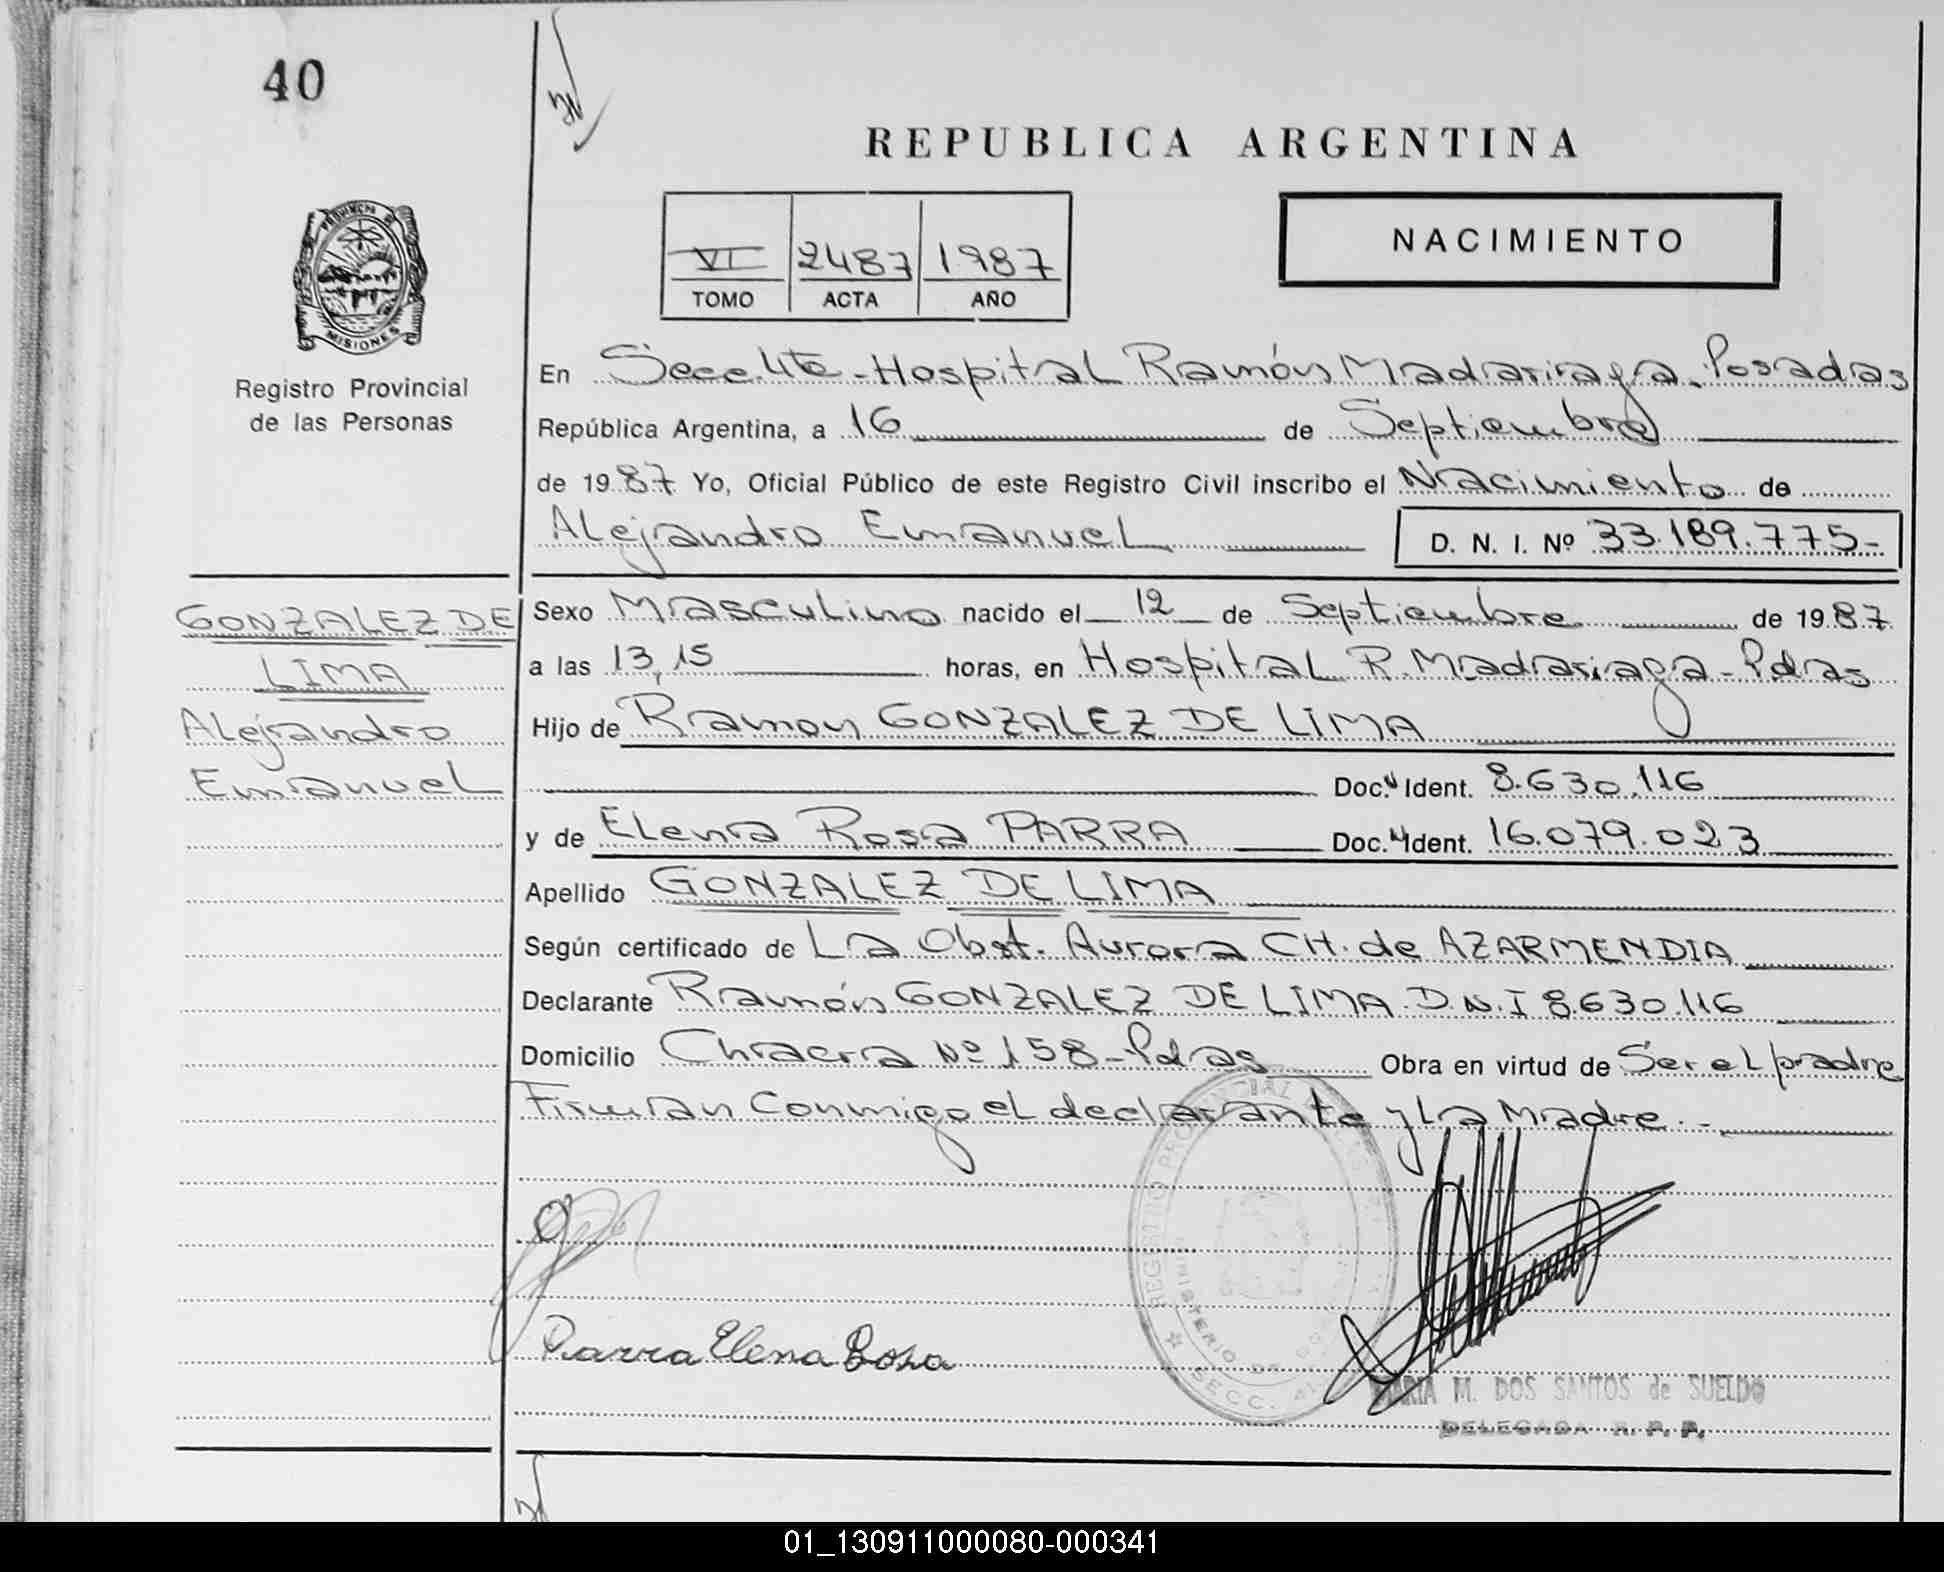 40
REPUBLICA ARGENTINA
VI 2487 1987
TOMO ACTA AÑO
NACIMIENTO
PROVINCIA DE
MISIONES
Registro Provincial
de las Personas
En Secc. 4ta - Hospital Ramón Madariaga. Posadas
República Argentina, a 16 de Septiembre
de 1987 Yo, Oficial Público de este Registro Civil inscribo el Nacimiento de
Alejandro Emanuel D. N. I. Nº 33.189.775-
GONZALEZ DE
LIMA
Alejandro
Emanuel
Sexo Masculino nacido el 12 de Septiembre de 1987
a las 13,15 horas, en Hospital R. Madariaga - Pdas
Hijo de Ramon GONZALEZ DE LIMA
Doc. Ident. 8.630.116
y de Elena Rosa PARRA Doc. Ident. 16.079.023
Apellido GONZALEZ DE LIMA
Según certificado de La Obst. Aurora CH. de AZARMENDIA
Declarante Ramón GONZALEZ DE LIMA. D.N.I 8.630.116
Domicilio Chacra Nº 158 - Pdas Obra en virtud de Ser el padre
Firman Conmigo el declarante y La Madre. -
REGISTRO PROVINCIAL
MINISTERIO DE
SECC. 4
Parra Elena Rosa
MARIA M. DOS SANTOS de SUELDO
DELEGADA R. P. P.
01_130911000080-000341